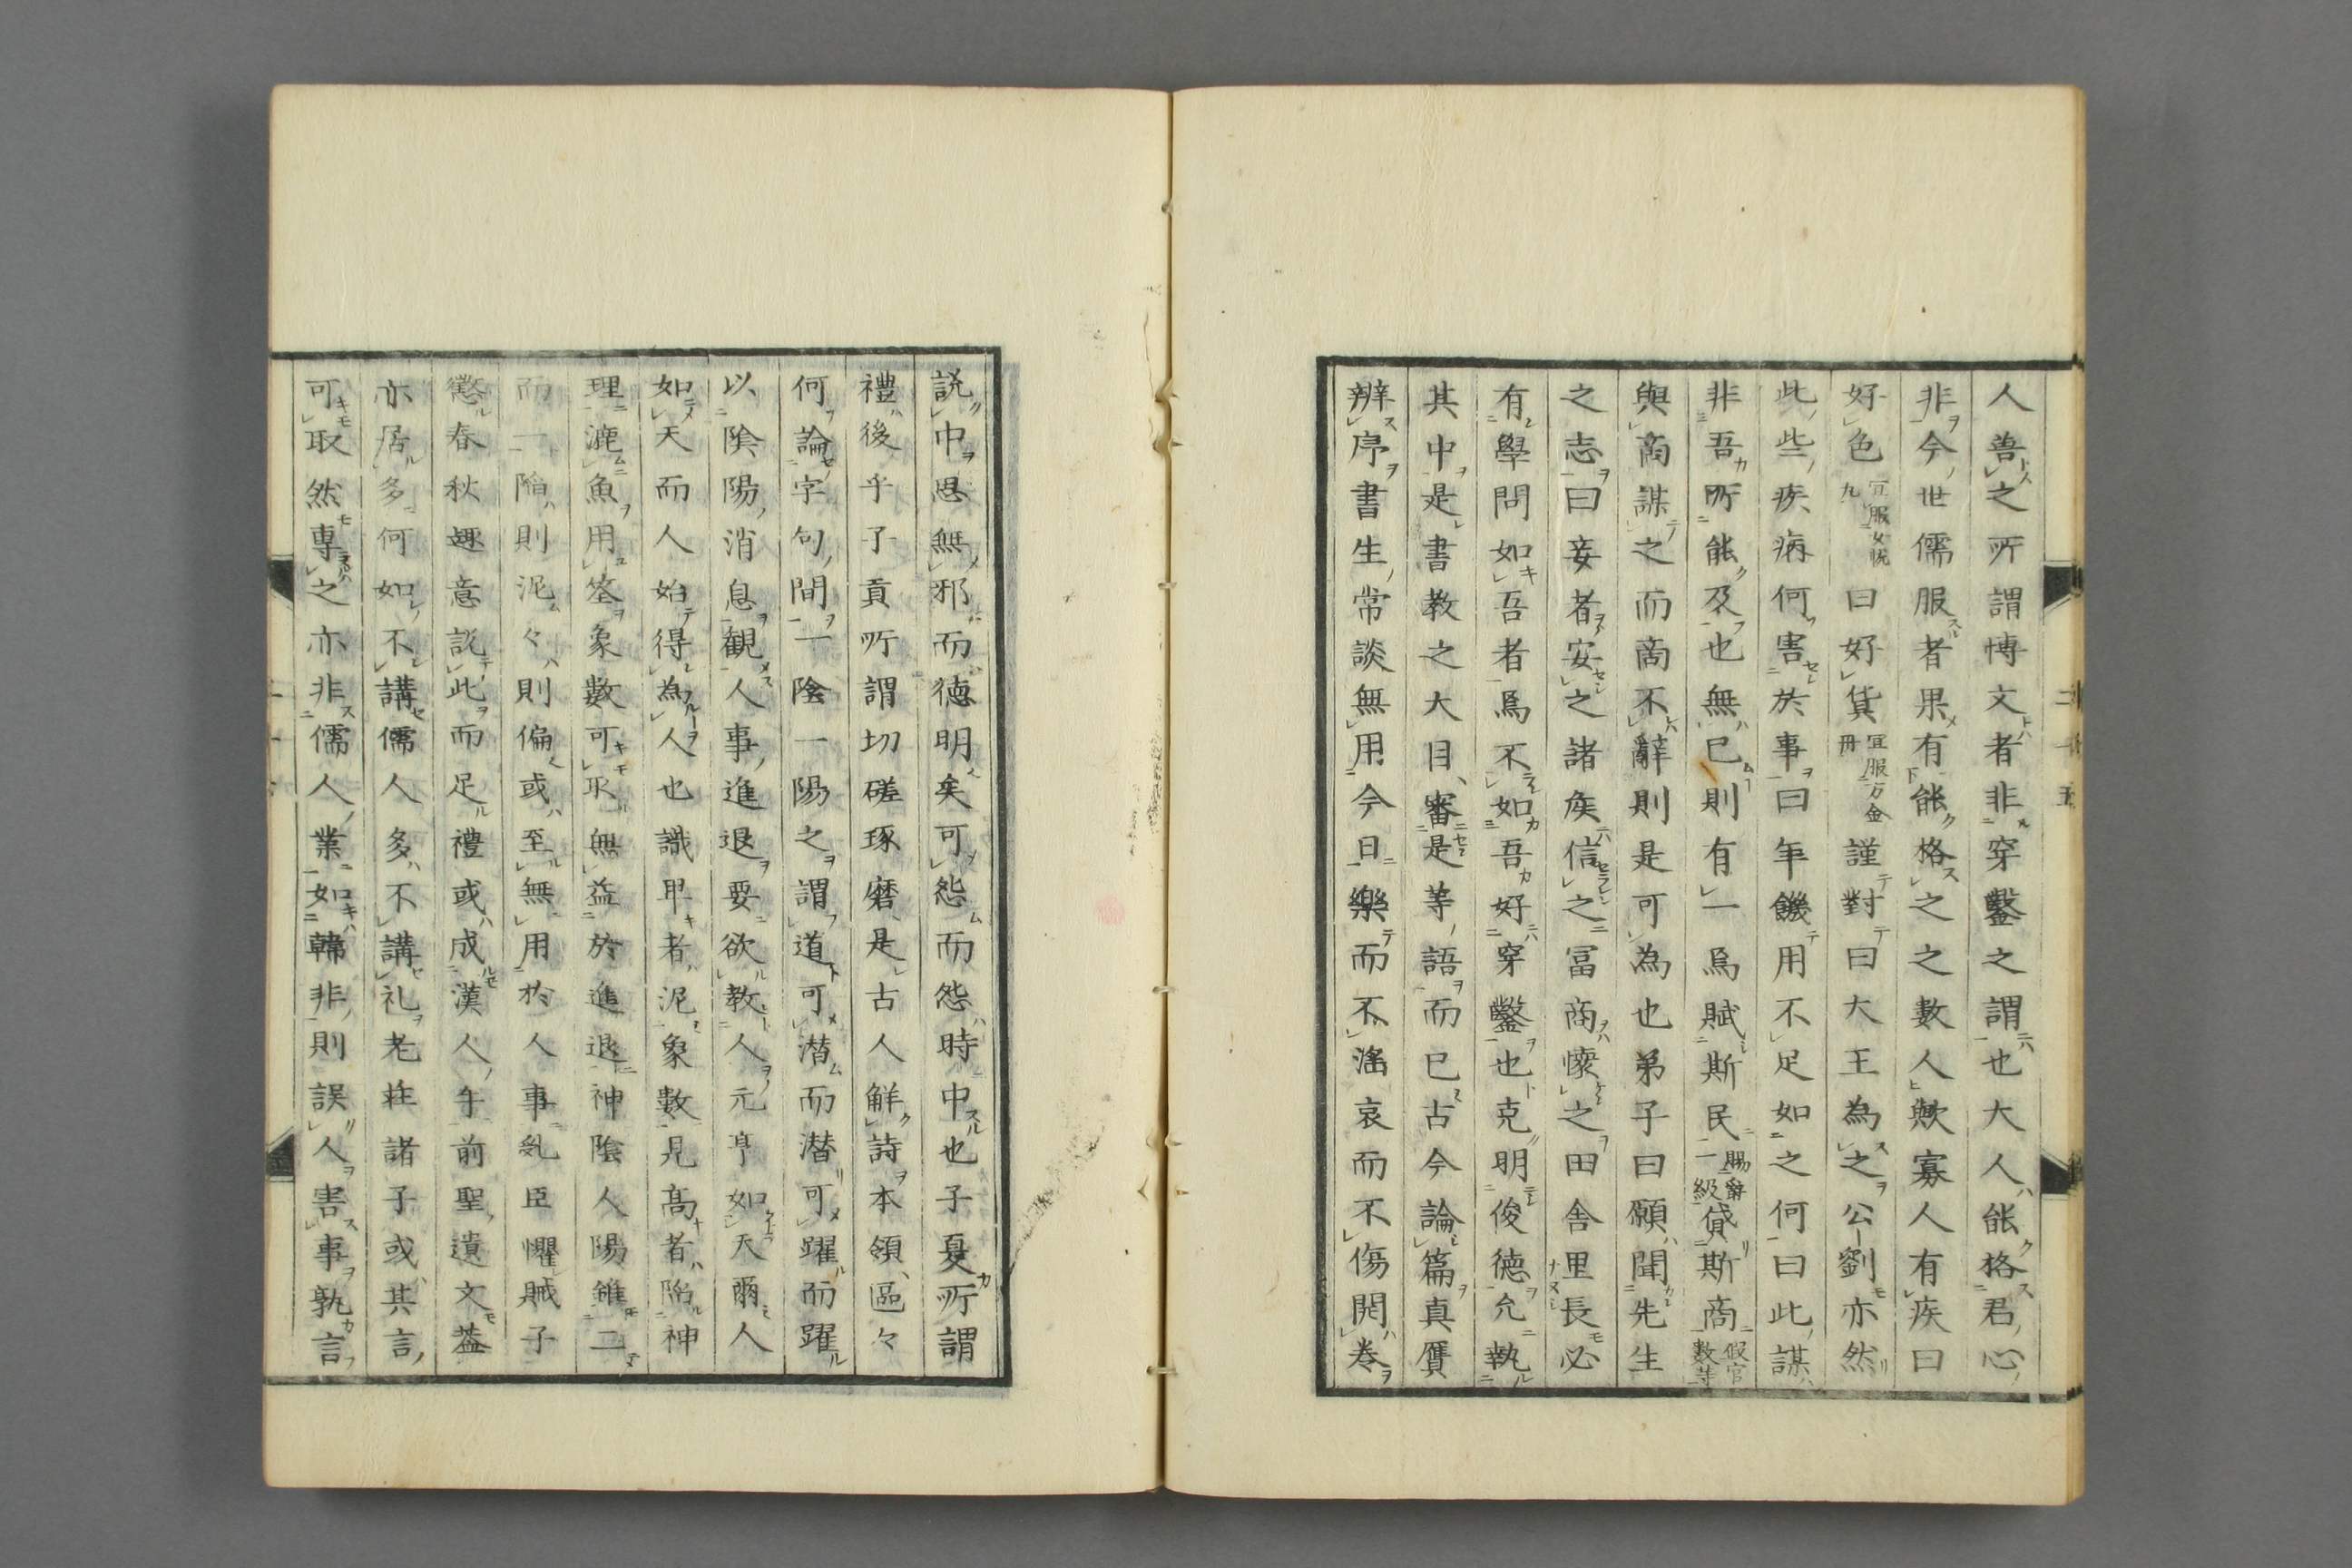 人善之所謂博文者非穿鑿之謂也大人能格君心
非今世儒服者果有能格之之數人歟寡人有疾曰
好色宜服女悅丸曰好貨宜服万金冊謹對曰大王為之公劉亦然
此些疾病何害於事曰年饑用不足如之何曰此謀
非吾所能及也無已則有一焉賦斯民賜爵一級貸斯商假官數等
與商謀之而商不辭則是可為也弟子曰願聞先生
之志曰妾者安之諸矦信之冨商懷之田舎里長必
有學問如吾者焉不如吾好穿鑿也克明俊德允執
其中是書教之大目審是等語而已古今論篇真贋
辨序書生常談無用今日樂而不滛哀而不傷開卷
說中思無邪而德明矣可怨而怨時中也子夏所謂
禮後乎子貢所謂切磋琢磨是古人解詩本領區々
何論字句間一陰一陽之謂道可潜而潜可躍而躍
以陰陽消息観人事進退要欲教人元亨如天爾人
如天而人始得為人也識卑者泥象數見高者陷神
理漉魚用筌象數可取無益於進退神陰人陽雖二
而一陷則泥々則偏或至無用於人事乱臣懼賊子
懲春秋趣意說此而足禮或成漢人手前聖遺文葢
亦居多何如不講儒人多不講礼老莊諸子或其言
可取然專之亦非儒人業如韓非則誤人害事孰言